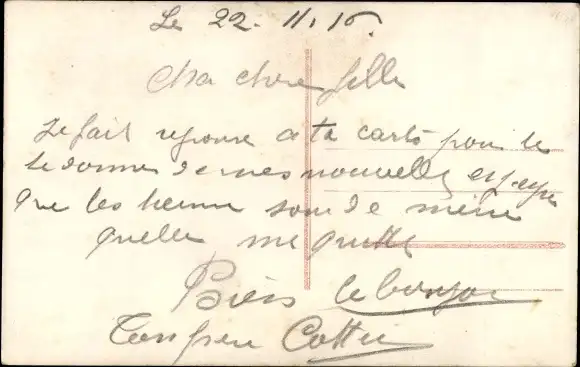 Le 22. 11. 15.
Cha chere fille
Je fait reponse a ta carte pour te
te donner de mes nouvelles espere
que les tienne son de meme
quelle me quitte
Bien le bonjour
Ton pere